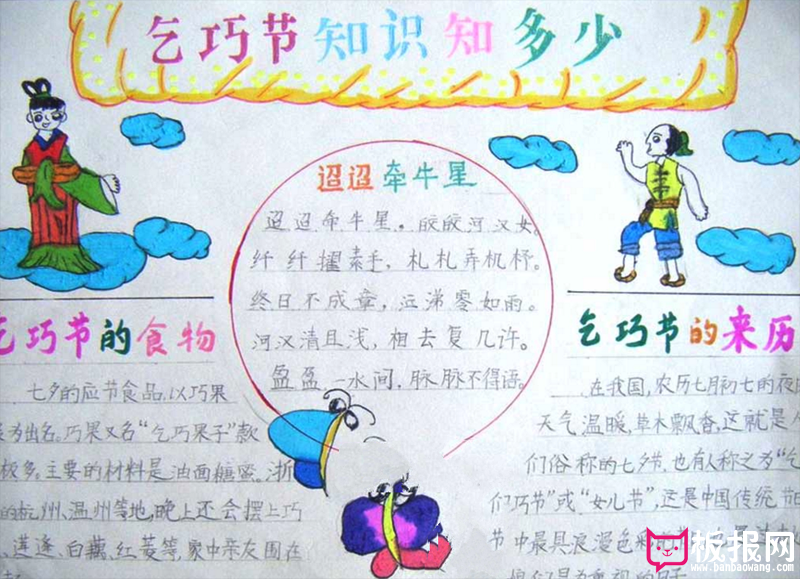 乞巧节知识知多少
迢迢牵牛星
迢迢牵牛星,皎皎河汉女。
纤纤擢素手,札札弄机杼。
终日不成章,泣涕零如雨。
河汉清且浅,相去复几许。
盈盈一水间,脉脉不得语。
乞巧节的食物
七夕的应节食品,以巧果
为出名。巧果又名“乞巧果子”款
极多。主要的材料是油面糖蜜。浙
的杭州、温州等地,晚上还会摆上巧
、莲蓬、白藕、红菱等,家中亲友围在
乞巧节的来历
在我国,农历七月初七的夜
天气温暖,草木飘香,这就是人
们俗称的七夕节,也有人称之为“乞
们巧节”或“女儿节”,这是中国传统节日
节中最具浪漫色彩的
板报网
www.banbaowang.com